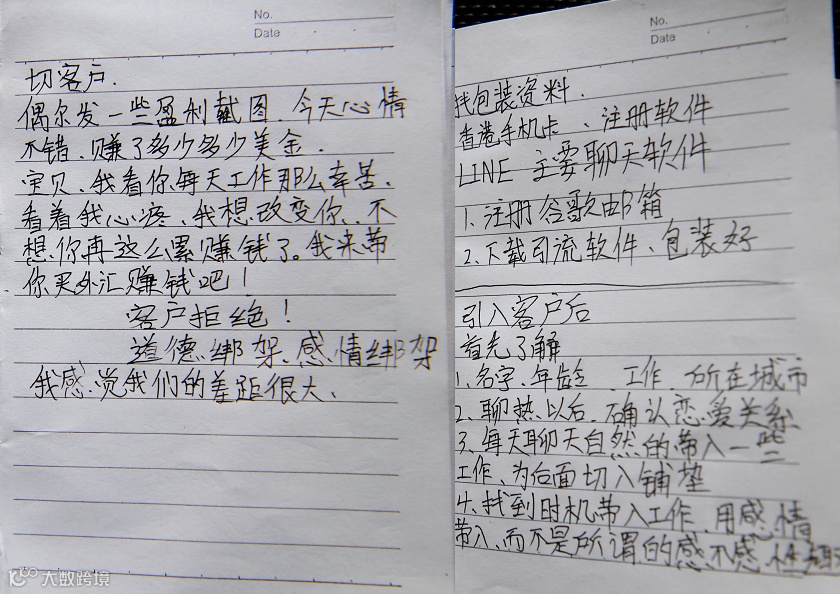 No.
Date
切客户.
偶尔发一些盈利截图.今天心情
不错.赚了多少多少美金.
宝贝.我看你每天工作那么辛苦.
看着我心疼.我想改变你.不
想你再这么累赚钱了。我来带
你买外汇赚钱吧!
客户拒绝!
道德绑架、感情绑架
我感觉我们的差距很大、
No.
Date
找包装资料.
香港手机卡、注册软件
LINE 主要聊天软件
1.注册谷歌邮箱
2.下载引流软件、包装好
引入客户后
首先了解
1.名字.年龄.工作.所在城市
2.聊热以后.确认恋爱关系
3.每天聊天自然的带入一些
工作、为后面切入铺垫
4.找到时机带入工作.用感情
带入.而不是所谓的感不感.性
大数跨境